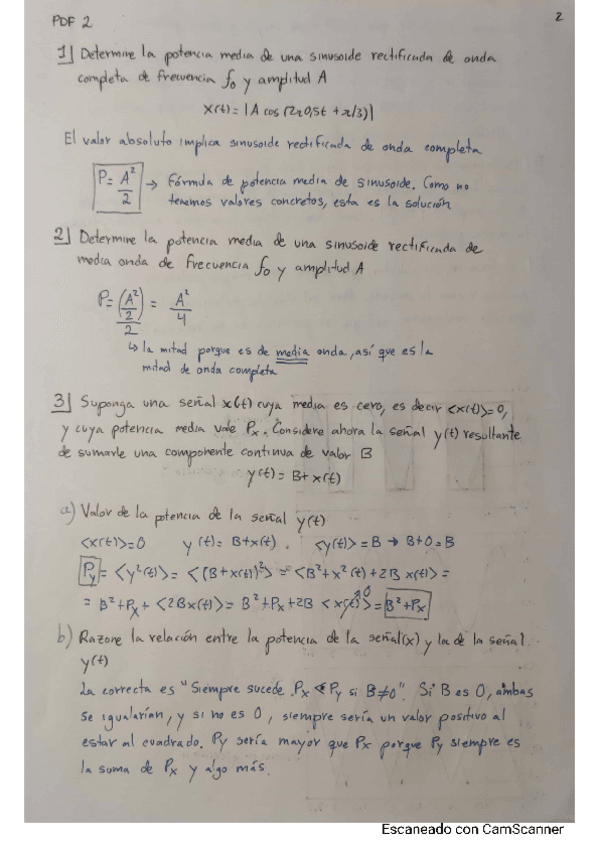 PDF 2
2
1] Determine la potencia media de una sinusoide rectificada de onda
completa de frecuencia f₀ y amplitud A
x(t) = |A cos (2π0,5t + π/3)|
El valor absoluto implica sinusoide rectificada de onda completa
P = A²/2 → Fórmula de potencia media de sinusoide. Como no
tenemos valores concretos, esta es la solución
2] Determine la potencia media de una sinusoide rectificada de
media onda de frecuencia f₀ y amplitud A
P = (A²/2)/2 = A²/4
↳ la mitad porque es de media onda, así que es la
mitad de onda completa
3] Suponga una señal x(t) cuya media es cero, es decir <x(t)>=0,
y cuya potencia media vale Px. Considere ahora la señal y(t) resultante
de sumarle una componente continua de valor B
y(t) = B + x(t)
a) Valor de la potencia de la señal y(t)
<x(t)>=0 y(t) = B+x(t) . <y(t)> = B → B+0=B
Py = <y²(t)> = <(B+x(t))²> = <B²+x²(t)+2B x(t)> =
= B²+Px+<2Bx(t)> = B²+Px+2B <x(t)>⁰ = B²+Px
b) Razone la relación entre la potencia de la señal(x) y la de la señal
y(t)
La correcta es "Siempre sucede Px < Py si B≠0". Si B es 0, ambas
se igualarían, y si no es 0, siempre sería un valor positivo al
estar al cuadrado. Py sería mayor que Px porque Py siempre es
la suma de Px y algo más.
Escaneado con CamScanner